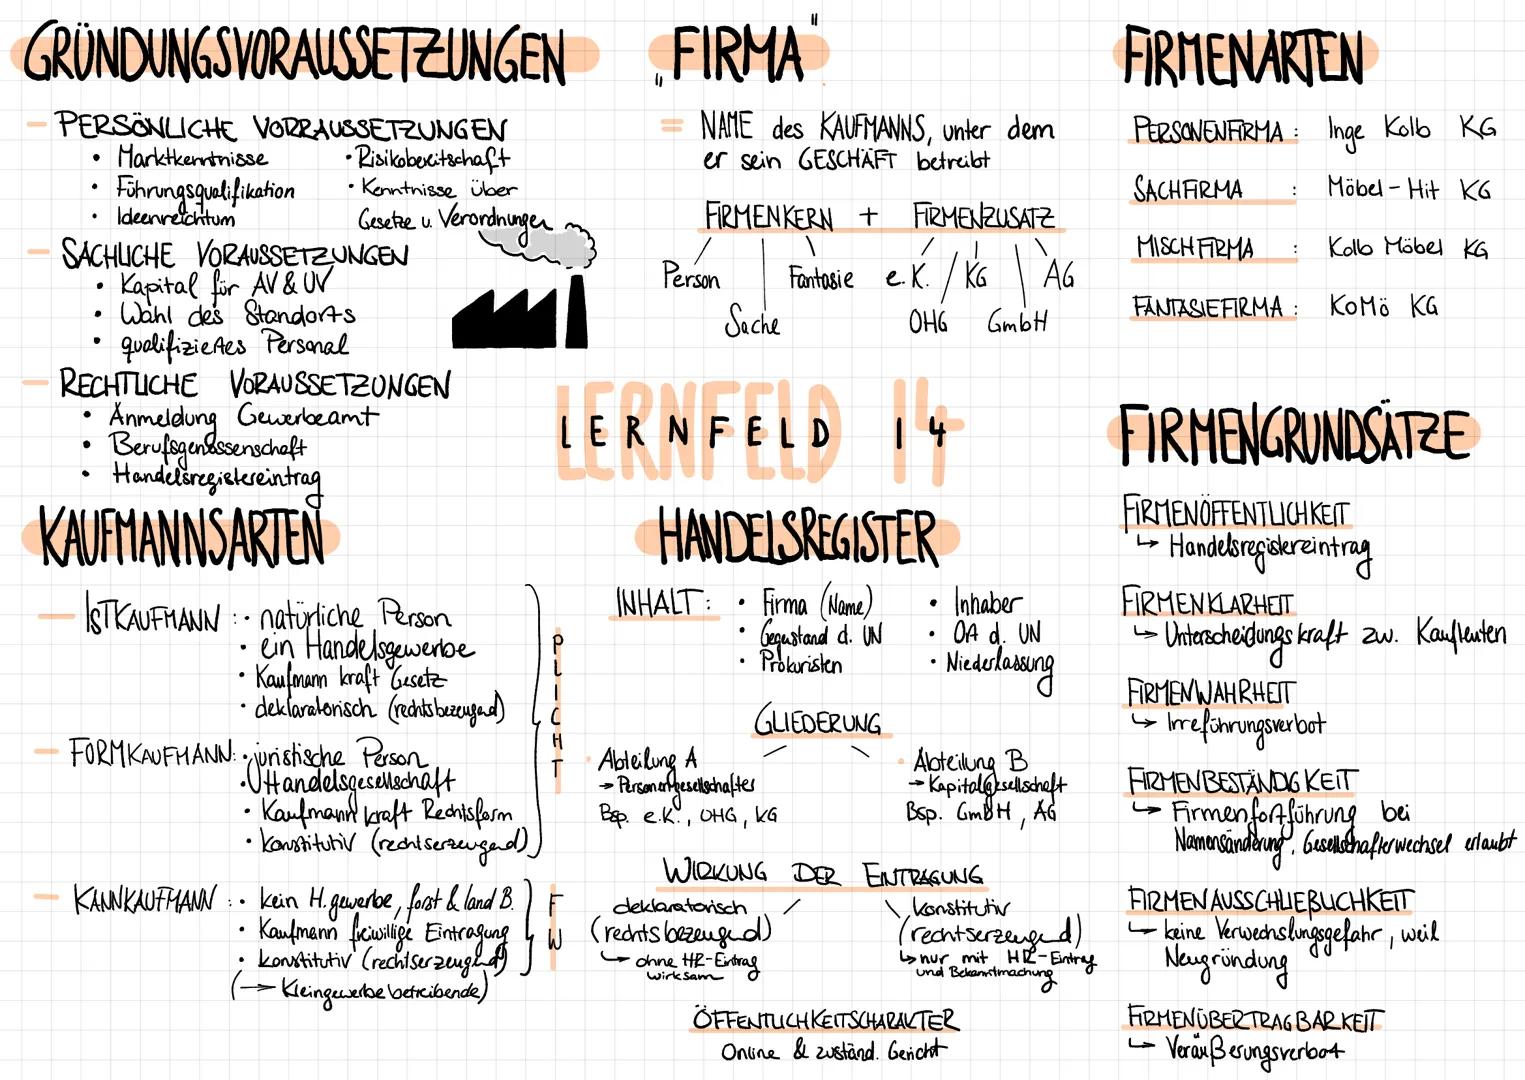 GRÜNDUNGSVORAUSSETZUNGEN
– PERSÖNLICHE VORRAUSSETZUNGEN
• Marktkenntnisse
• Führungsqualifikation
• Ideenreichtum
• Risikobereitschaft
• Kenntnisse über
Gesetze u. Verordnungen
– SACHLICHE VORAUSSETZUNGEN
• Kapital für AV & UV
• Wahl des Standorts
• qualifiziertes Personal
– RECHTLICHE VORAUSSETZUNGEN
• Anmeldung Gewerbeamt
• Berufsgenossenschaft
• Handelsregistereintrag
„FIRMA"
= NAME des KAUFMANNS, unter dem
er sein GESCHÄFT betreibt
FIRMENKERN + FIRMENZUSATZ
Person Fantasie e.K. / KG AG
Sache OHG GmbH
FIRMENARTEN
PERSONENFIRMA : Inge Kolb KG
SACHFIRMA : Möbel-Hit KG
MISCHFIRMA : Kolb Möbel KG
FANTASIEFIRMA : KoMö KG
LERNFELD 14
LERNFELD 14
KAUFMANNSARTEN
– ISTKAUFMANN : • natürliche Person
• ein Handelsgewerbe
• Kaufmann kraft Gesetz
• deklaratorisch (rechtsbezeugend)
– FORMKAUFMANN: • juristische Person
• Handelsgesellschaft
• Kaufmann kraft Rechtsform
• konstitutiv (rechtserzeugend)
PLICHT
– KANNKAUFMANN : • kein H.gewerbe, forst & land B.
• Kaufmann freiwillige Eintragung
• konstitutiv (rechtserzeugend)
(→ Kleingewerbebetreibende)
FW
HANDELSREGISTER
INHALT : • Firma (Name)
• Gegenstand d. UN
• Prokuristen
• Inhaber
• OA d. UN
• Niederlassung
GLIEDERUNG
• Abteilung A
→ Personengesellschaften
Bsp. e.K., OHG, KG
• Abteilung B
→ Kapitalgesellschaft
Bsp. GmbH, AG
WIRKUNG DER EINTRAGUNG
deklaratorisch
(rechtsbezeugend)
↳ ohne HR-Eintrag
wirksam
konstitutiv
(rechtserzeugend)
↳ nur mit HR-Eintrag
und Bekanntmachung
ÖFFENTLICHKEITSCHARAKTER
Online & zuständ. Gericht
FIRMENGRUNDSÄTZE
FIRMENÖFFENTLICHKEIT
↳ Handelsregistereintrag
FIRMENKLARHEIT
↳ Unterscheidungskraft zw. Kaufleuten
FIRMENWAHRHEIT
↳ Irreführungsverbot
FIRMENBESTÄNDIGKEIT
↳ Firmenfortführung bei
Namensänderung, Gesellschafterwechsel erlaubt
FIRMENAUSSCHLIEßLICHKEIT
↳ keine Verwechslungsgefahr, weil
Neugründung
FIRMENÜBERTRAGBARKEIT
↳ Veräußerungsverbot